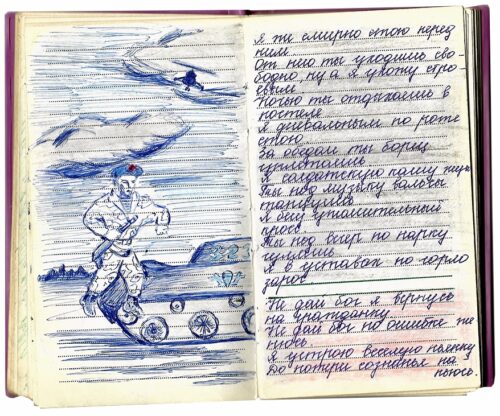 А ты смирно стою перед
ним
От него ты уходишь сво-
бодно, ну а я ухожу стро-
евым
Ночью ты отдыхаешь в
постеле
Я дневальным по роте
стою
За обедом ты борщ
уплетаешь
Я солдатскую пашу
Ты под музыку вальсы
танцуешь
Я бегу утомительный
кросс
Ты под вечер по парку
гуляешь
Я в уставах по горло
зарос
Не дай бог я вернусь
на гражданку
Не дай бог по ошибке же-
нюсь
Я устрою веселую пьянку
До потери сознанья на-
пьюсь.